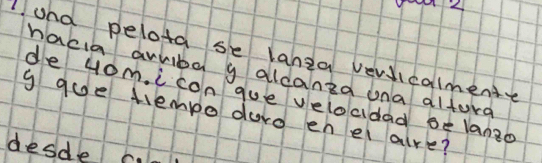 7. una pelota se lanza verticalmente
hacia arriba y alcanza una altura
de 40m. ¿con que velocidad se lanzo
y que tiempo duro en el aire?
desde